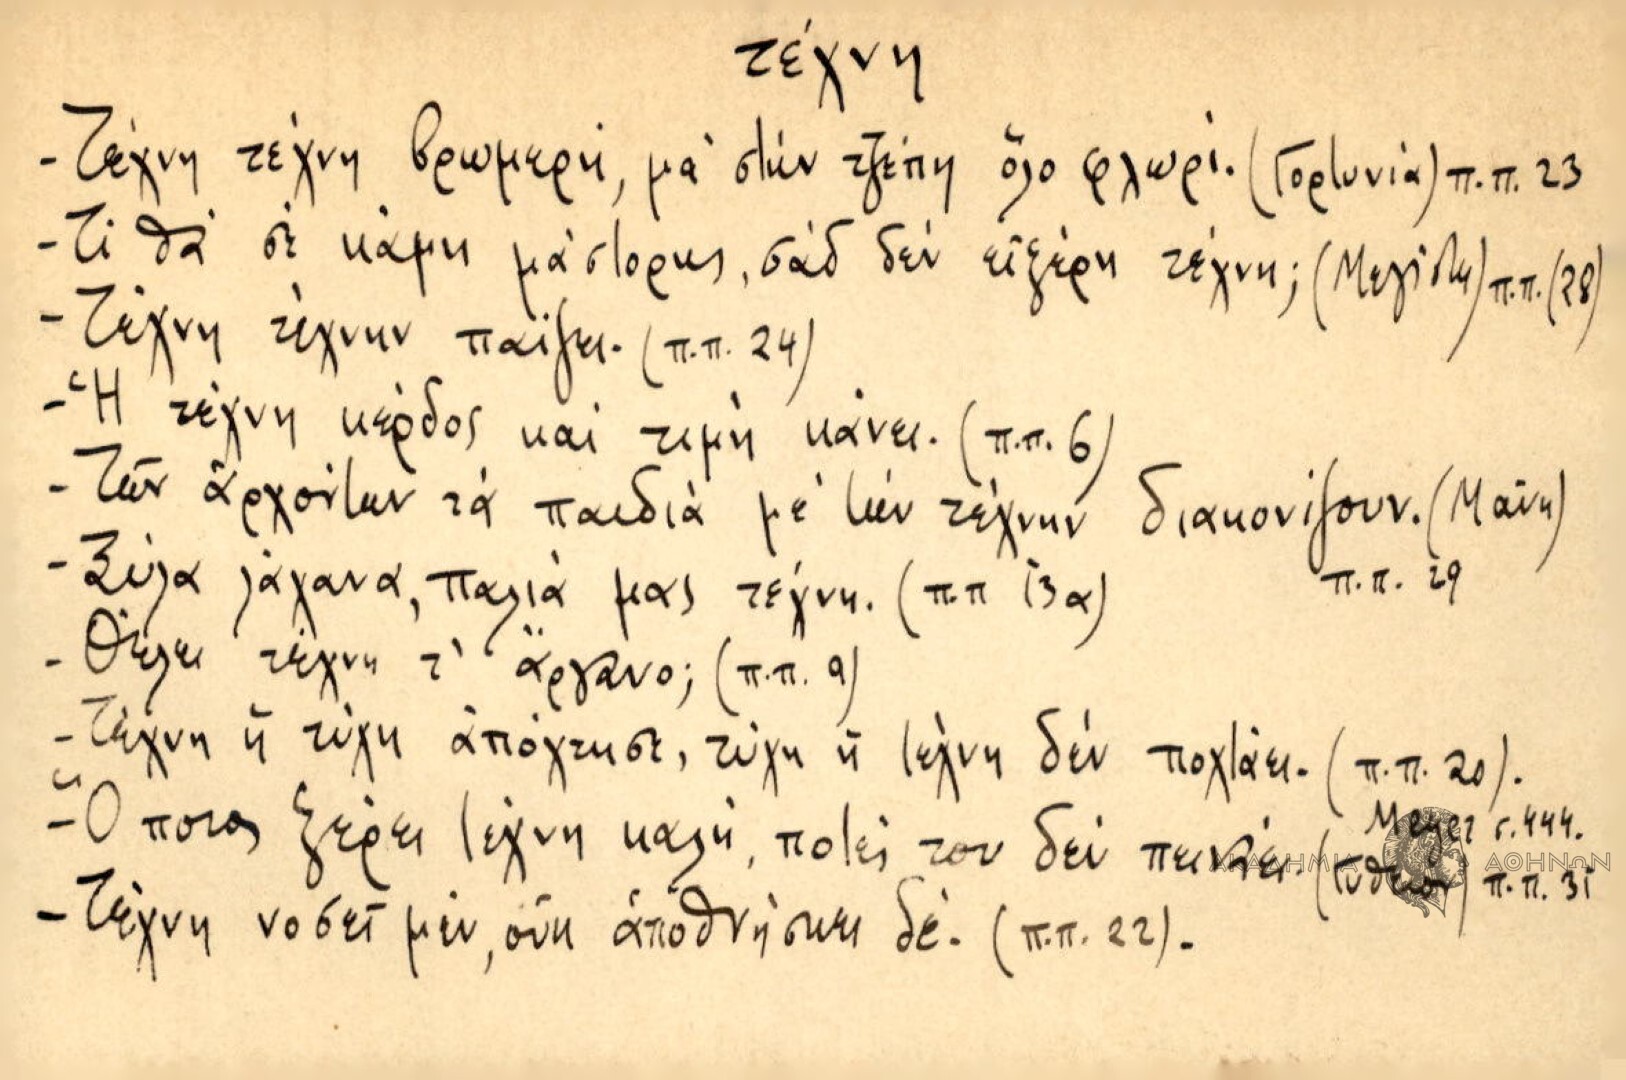 τέχνη
- Τέχνη τέχνη βρωμερή, μα' στήν τζέπη ὅλο φλωρί. (Γορτυνία) π.π. 23
- Τί θά σέ κάμη μάστορης, σάδ δέν εἰξέρη τέχνη; (Μεγίστη) π.π. (28)
- Τέχνη τέχνην παίζει. (π.π. 24)
- Ἡ τέχνη κέρδος καί τιμή κάνει. (π.π. 6)
- Τῶν ἀρχόντων τά παιδιά μέ τήν τέχνην διακονίζουν. (Μάνη)
π.π. 29
- Ξύλα λάχανα, παλιά μας τέχνη. (π.π 13α)
- Θέλει τέχνη τ' ἄργανο; (π.π. 9)
- Τέχνη ἤ τύχη ἀπόχτησε, τύχη ἤ τέχνη δέν ποχτάει. (π.π. 20).
- Ὅποιος ξέρει τέχνη καλή, ποτές του δέν πεινάει. (Γύθειον) π.π. 31
Meyer σ. 444.
ΑΚΑΔΗΜΙΑ ΑΘΗΝΩΝ
- Τέχνη νοσεῖ μέν, οὐκ ἀποθνήσκει δέ. (π.π. 22).